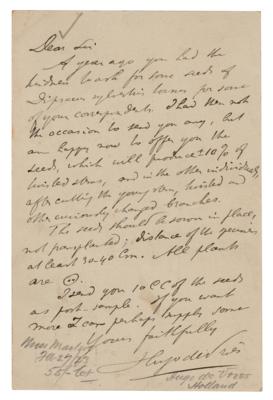 Dear Sir
A years ago you had the
kindness to ask for some seeds of
Dipsacus sylvestris torsus for some
of your correspondents. I had then not
the occasion to send you any, but
am happy now to offer you the
seeds, which will produce ± 10% of
twisted stems, and in the other individuals,
after cutting the young stem, twisted and
other curiously changed branches.
The seeds should be sown in place,
not transplanted; distance of the specimens
at least 30-40 Cm. All plants
are
I send you 10 CC of the seeds
as post-sample. If you want
more I can perhaps supply some
Yours faithfully
Hugo de Vries
Hugo de Vries
Holland